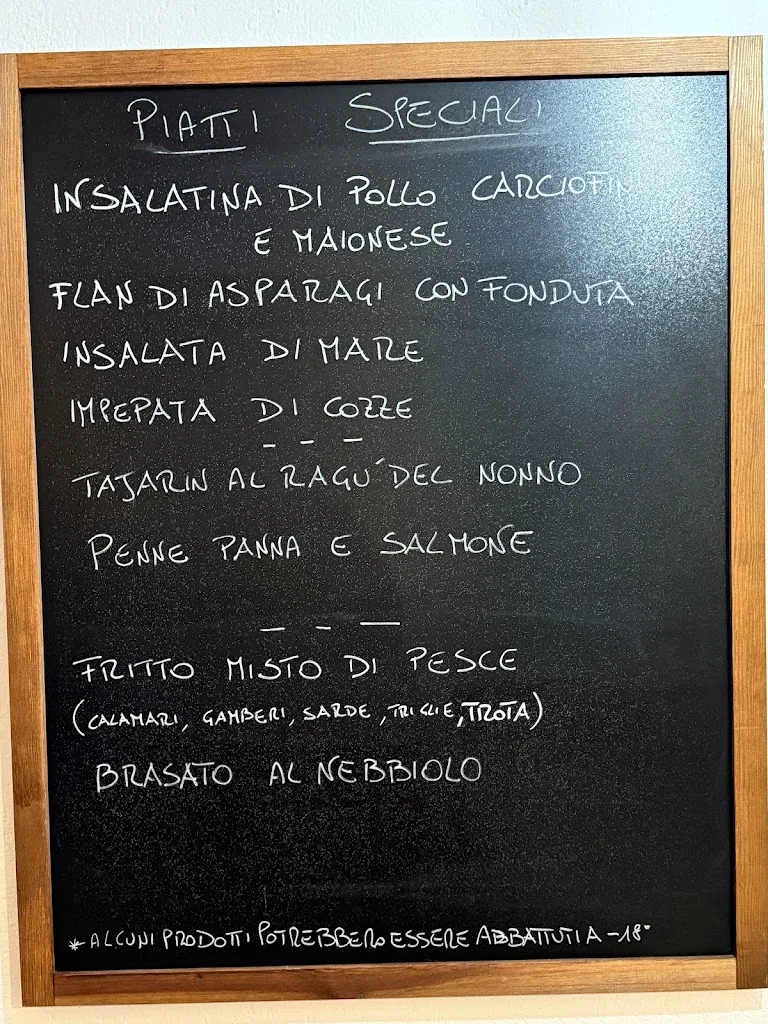 PIATTI SPECIALI
INSALATINA DI POLLO CARCIOFINI
E MAIONESE
FLAN DI ASPARAGI CON FONDUTA
INSALATA DI MARE
IMPEPATA DI COZZE
- - -
TAJARIN AL RAGU´ DEL NONNO
PENNE PANNA E SALMONE
- - -
FRITTO MISTO DI PESCE
(CALAMARI, GAMBERI, SARDE, TRIGLIE, TROTA)
BRASATO AL NEBBIOLO
* ALCUNI PRODOTTI POTREBBERO ESSERE ABBATTUTI A -18°